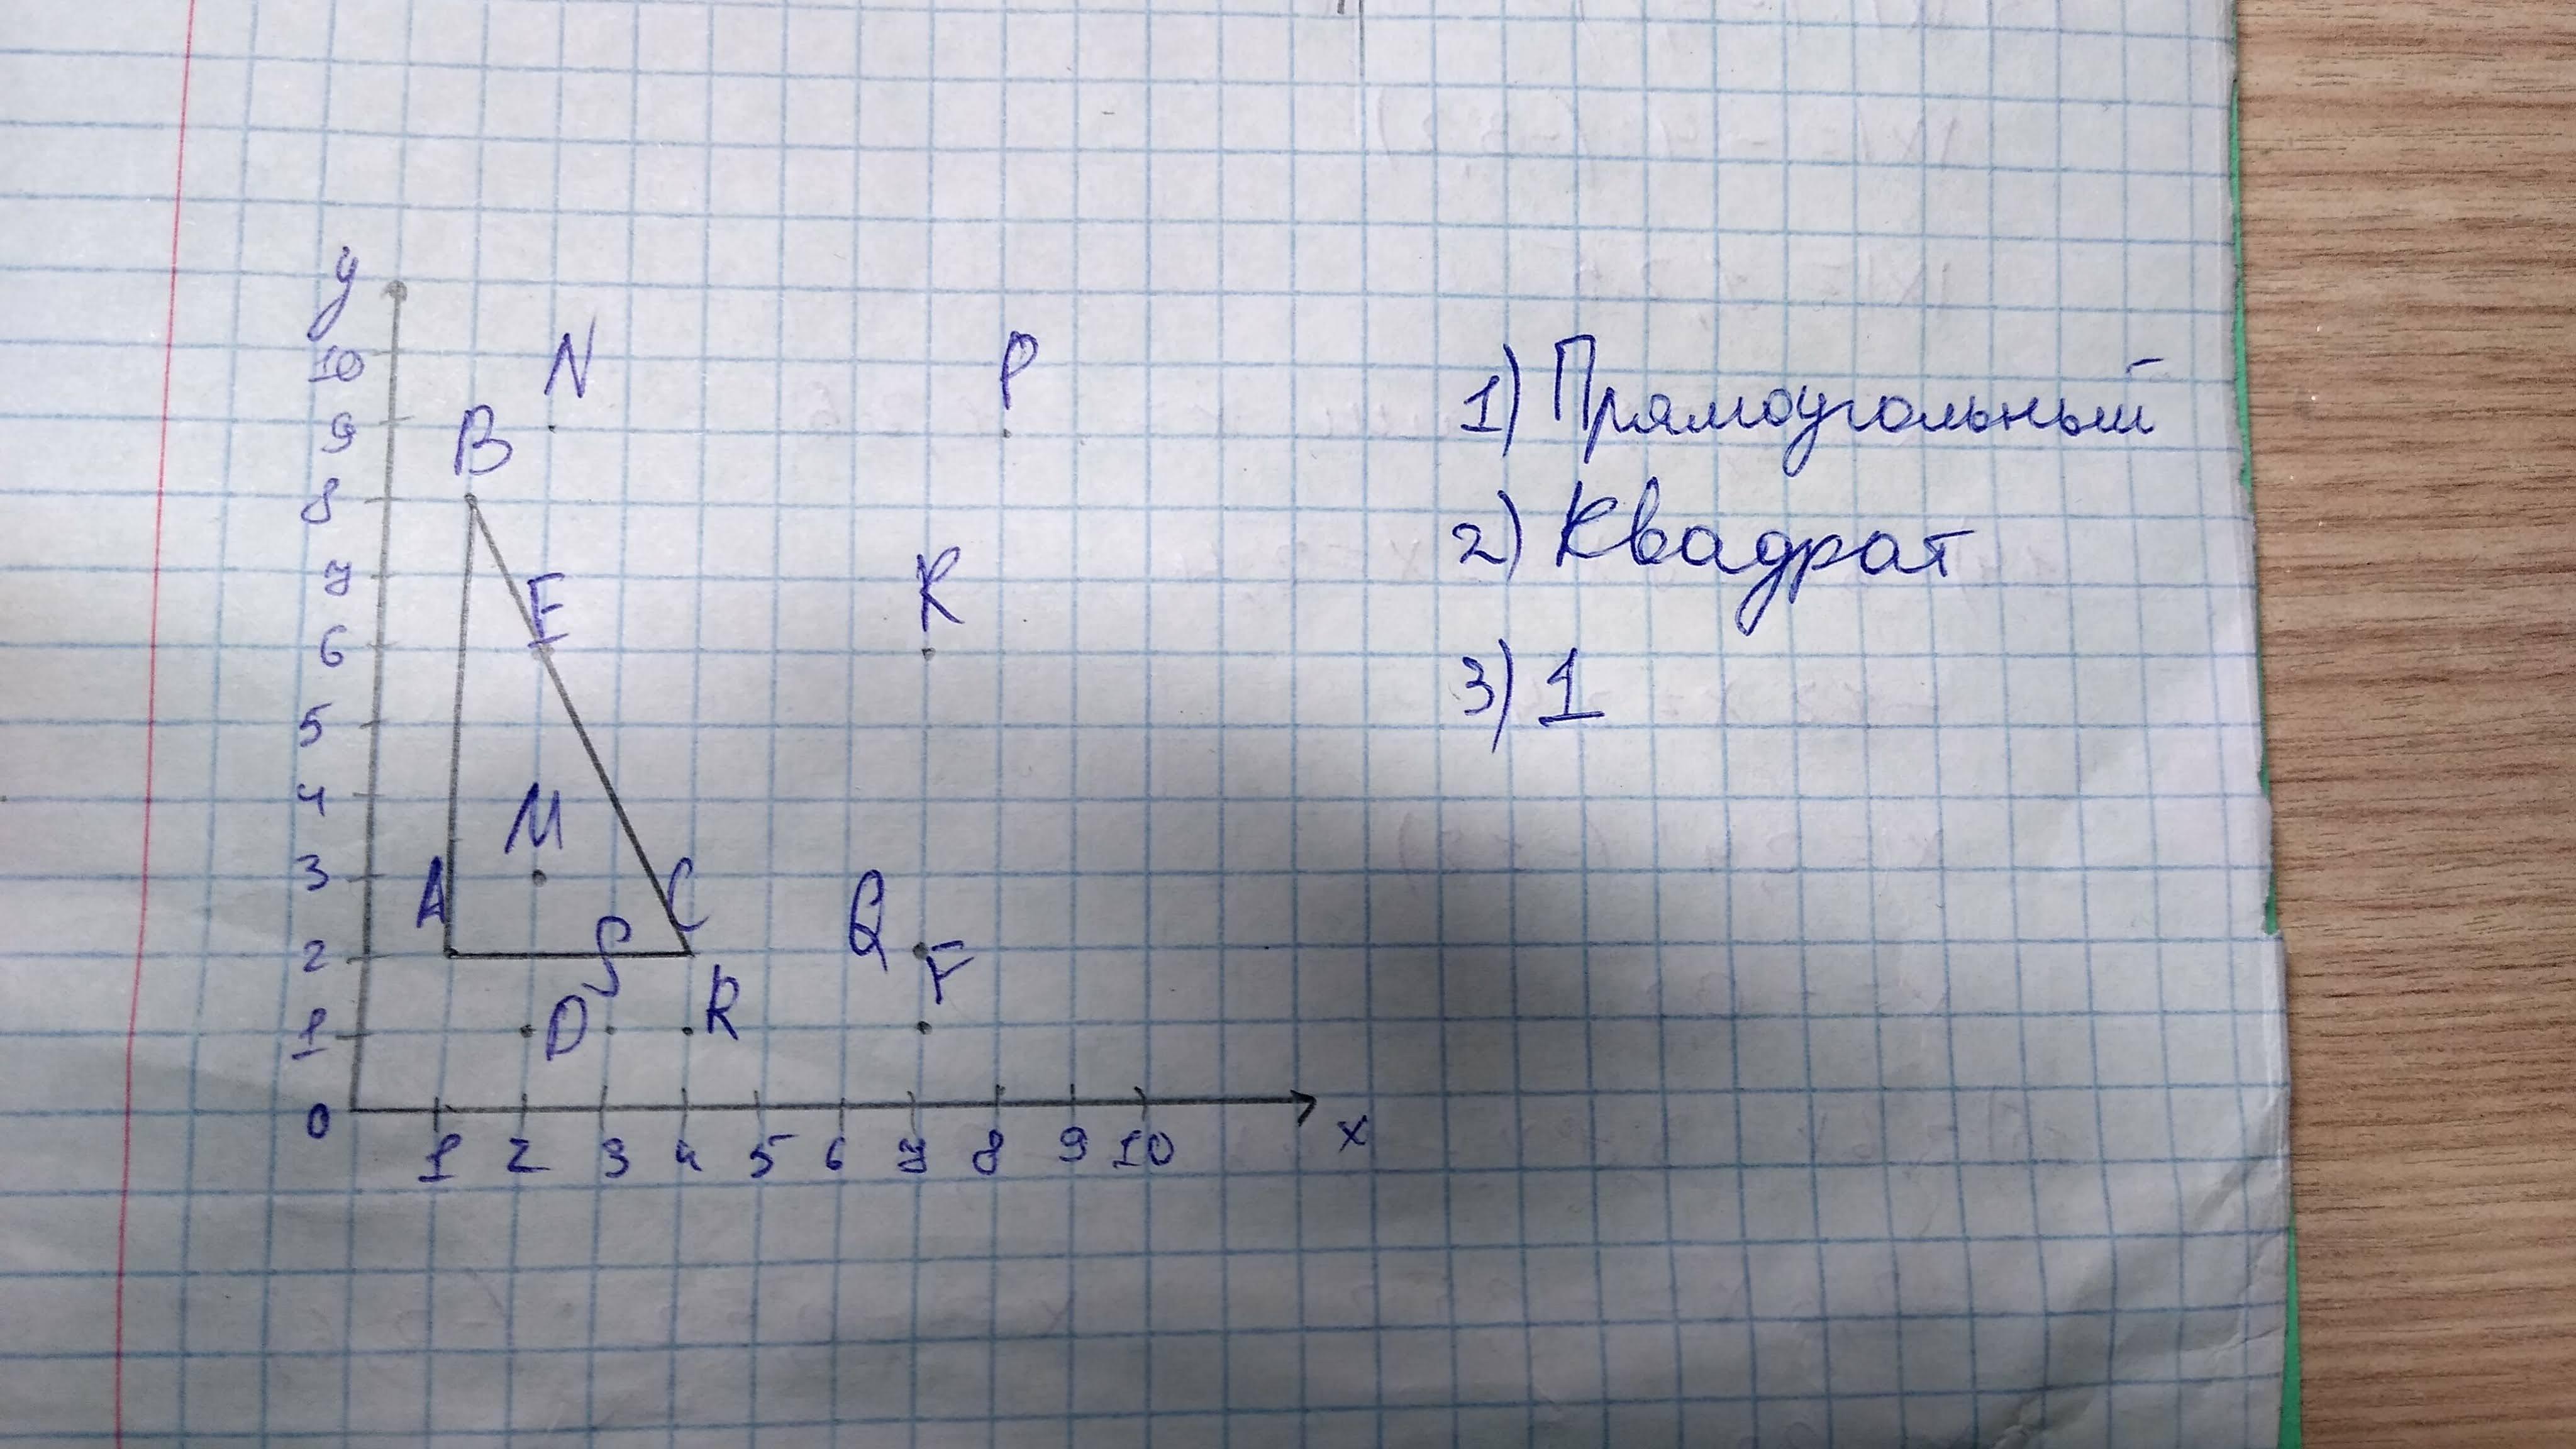 y
10 N P
9
B
8
7 E K
6
5
4 M
3 A C Q
2 S F
1 D R
0 1 2 3 4 5 6 7 8 9 10 x
1) Прямоугольный
2) Квадрат
3) 1